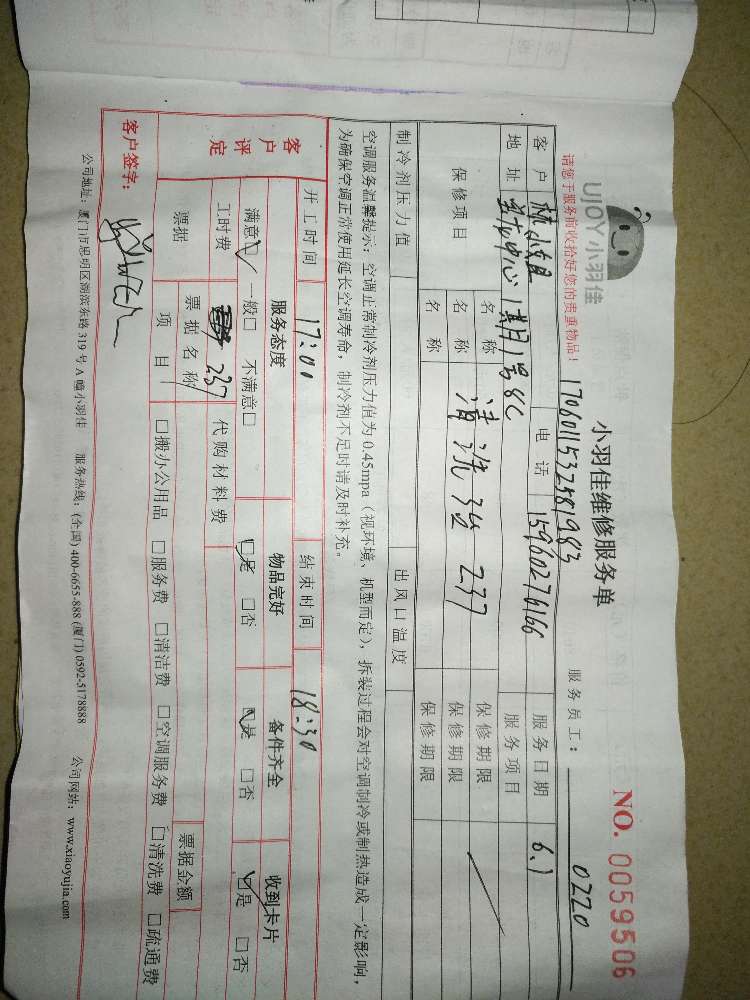 UJOY小羽佳
小羽佳维修服务单
NO. 0059506
请您于服务前收拾好您的贵重物品！
1706011532481983
服务员工： 0220
客户 林小姐 电话 15960276166 服务日期 6.1
地址 中心1期1号8C 服务项目
保修项目 名称 清洗3台 237 保修期限
名称 保修期限
名称 保修期限
制冷剂压力值 出风口温度
空调服务温馨提示：空调正常制冷剂压力值为0.45mpa（视环境、机型而定），拆装过程会对空调制冷或制热造成一定影响，
为确保空调正常使用延长空调寿命，制冷剂不足时请及时补充。
客户评定 开工时间 17:00 结束时间 18:30
服务态度 物品完好 备件齐全 收到卡片
满意☑ 一般□ 不满意□ ☑是 □否 ☑是 □否 ☑是 □否
工时费 237 代购材料费
票据 票据名称 票据金额
项目 □搬办公用品 □服务费 □清洁费 □空调服务费 □清洗费 □疏通费
客户签字：
公司地址：厦门市思明区湖滨东路319号A幢小羽佳 服务热线：(全国) 400-6655-888 (厦门) 0592-5178888 公司网站：www.xiaoyujia.com